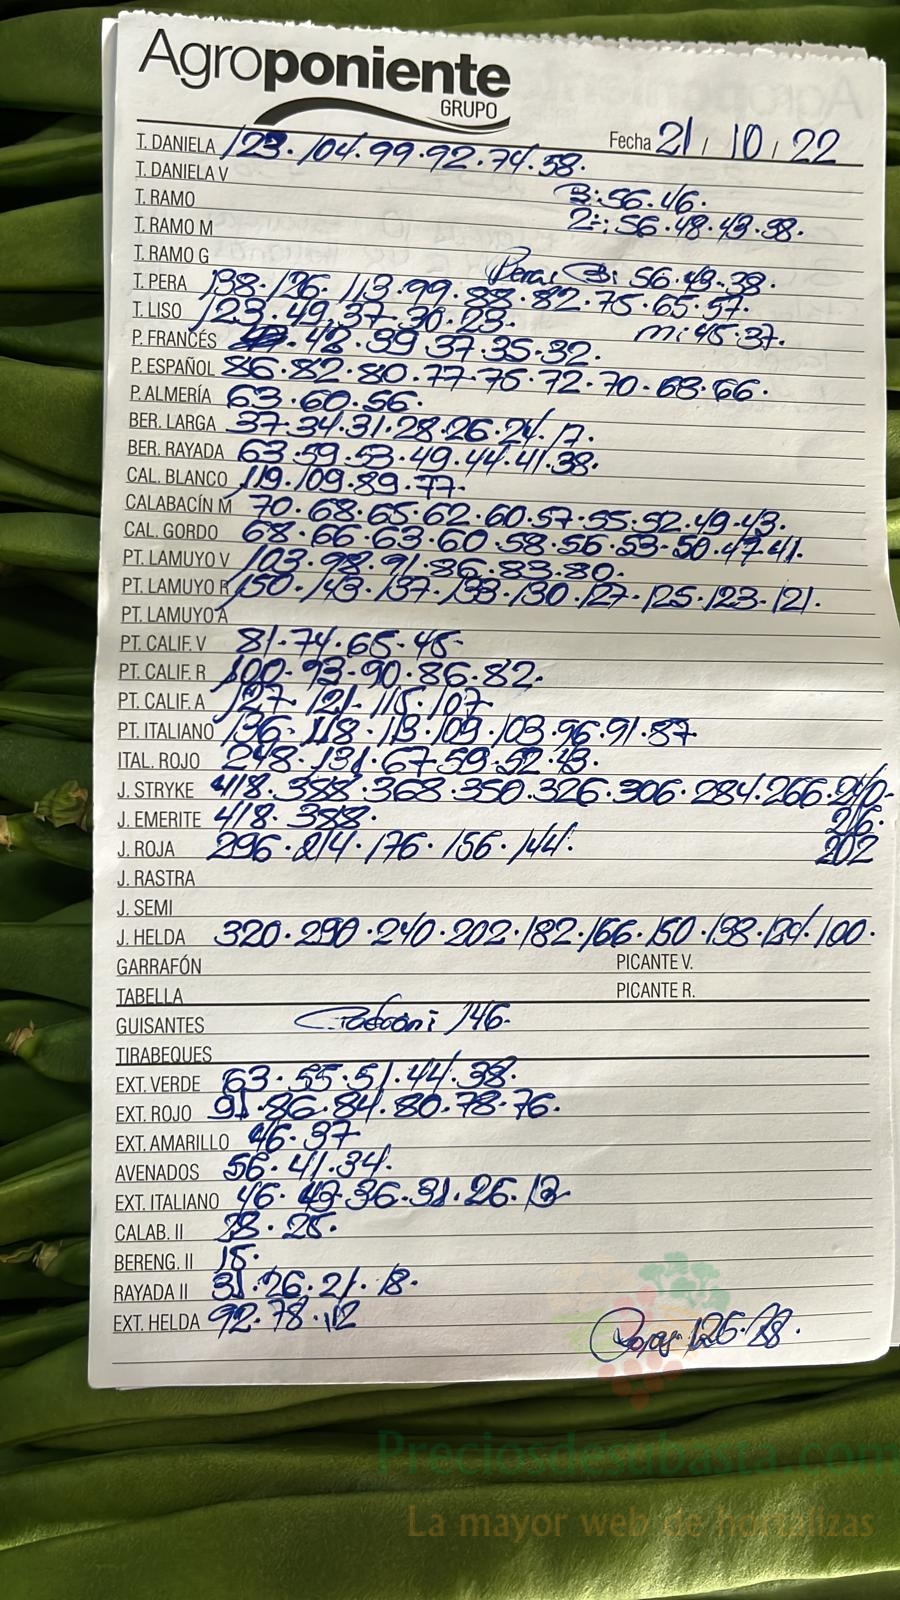 Agroponiente
GRUPO
Fecha 21 / 10 / 22
T. DANIELA 123. 104. 99. 92. 74. 58.
T. DANIELA V
T. RAMO 3: 56. 46.
T. RAMO M 2: 56. 48. 43. 38.
T. RAMO G
Pera: B: 56. 49. 38.
T. PERA 138. 126. 113. 99. 88. 82. 75. 65. 57.
T. LISO 123. 49. 37. 30. 23. m: 45. 37.
P. FRANCÉS 42. 39 37. 35. 32.
P. ESPAÑOL 86. 82. 80. 77. 75. 72. 70. 68. 66.
P. ALMERÍA 63. 60. 56.
BER. LARGA 37. 34. 31. 28. 26. 24. 17.
BER. RAYADA 63. 59. 53. 49. 44. 41. 38.
CAL. BLANCO 119. 109. 89. 77.
CALABACÍN M 70. 68. 65. 62. 60. 57. 55. 52. 49. 43.
CAL. GORDO 68. 66. 63. 60. 58. 56. 53. 50. 47. 41.
PT. LAMUYO V 103. 98. 91. 86. 83. 80.
PT. LAMUYO R 150. 143. 137. 133. 130. 127. 125. 123. 121.
PT. LAMUYO A
PT. CALIF. V 81. 74. 65. 45.
PT. CALIF. R 100. 93. 90. 86. 82.
PT. CALIF. A 127. 121. 115. 107.
PT. ITALIANO 136. 118. 113. 109. 103. 96. 91. 87.
ITAL. ROJO 248. 131. 67. 59. 52. 43.
J. STRYKE 418. 388. 368. 350. 326. 306. 284. 266. 240.
J. EMERITE 418. 388. 216.
J. ROJA 296. 214. 176. 156. 144. 202
J. RASTRA
J. SEMI
J. HELDA 320. 290. 240. 202. 182. 166. 150. 138. 124. 100.
GARRAFÓN PICANTE V.
TABELLA PICANTE R.
GUISANTES 146.
TIRABEQUES
EXT. VERDE 63. 55. 51. 44. 38.
EXT. ROJO 91. 86. 84. 80. 78. 76.
EXT. AMARILLO 46. 37
AVENADOS 56. 41. 34.
EXT. ITALIANO 46. 43. 36. 31. 26. 13.
CALAB. II 28. 25.
BERENG. II 15.
RAYADA II 31. 26. 21. 18.
EXT. HELDA 92. 78. 112
126. 28.
Preciosdesubasta.com
La mayor web de hortalizas